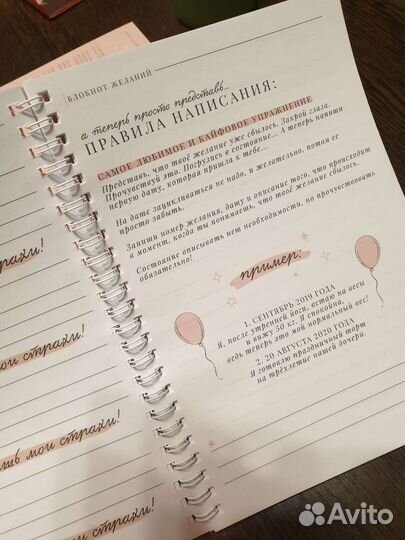 БЛОКНОТ ЖЕЛАНИЙ
а теперь просто представь...
ПРАВИЛА НАПИСАНИЯ:
САМОЕ ЛЮБИМОЕ И КАЙФОВОЕ УПРАЖНЕНИЕ
Представь, что твоё желание уже сбылось. Закрой глаза.
Прочувствуй это. Погрузись в состояние... А теперь напиши
первую дату, которая пришла к тебе...
На дате зацикливаться не надо, и желательно, потом ее
просто забыть.
Запиши номер желания, дату и описание того, что происходит
в момент, когда ты понимаешь, что твоё желание сбылось.
Состояние описывать нет необходимости, но прочувствовать
обязательно!
пример:
1. СЕНТЯБРЬ 2019 ГОДА
Я, после утренней йоги, встаю на весы
и вижу 50 кг. Я спокойна,
ведь теперь это мой нормальный вес!
2. 20 АВГУСТА 2020 ГОДА
Я готовлю праздничный торт
на трёхлетие нашей дочери.
страхи!
мои страхи!
мои страхи!
страхи!
Avito